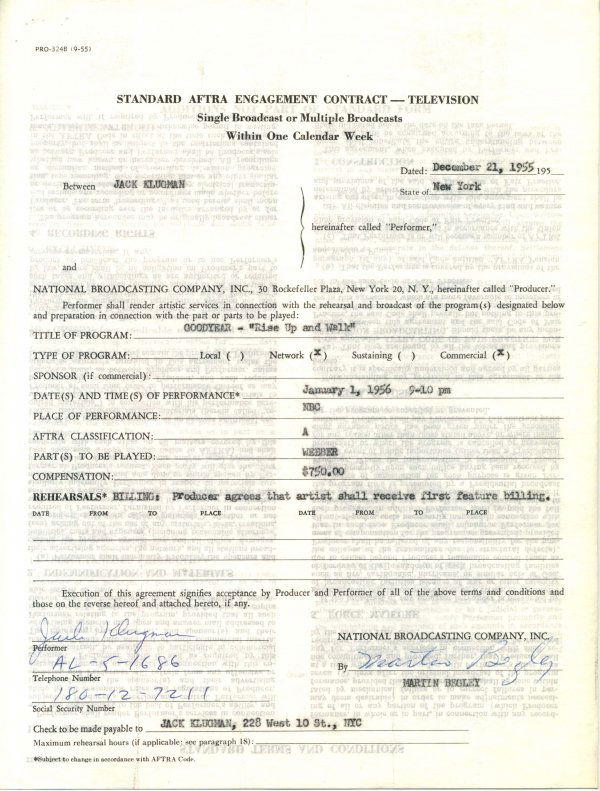 PRO-324B (9-55)
STANDARD AFTRA ENGAGEMENT CONTRACT — TELEVISION
Single Broadcast or Multiple Broadcasts
Within One Calendar Week
Dated: December 21, 1955 195
Between JACK KLUGMAN
State of New York
hereinafter called "Performer,"
and
NATIONAL BROADCASTING COMPANY, INC., 30 Rockefeller Plaza, New York 20, N. Y., hereinafter called "Producer."
Performer shall render artistic services in connection with the rehearsal and broadcast of the program(s) designated below
and preparation in connection with the part or parts to be played:
TITLE OF PROGRAM: GOODYEAR - "Rise Up and Walk"
TYPE OF PROGRAM: Local ( ) Network (X) Sustaining ( ) Commercial (X)
SPONSOR (if commercial):
DATE(S) AND TIME(S) OF PERFORMANCE* January 1, 1956 9-10 pm
PLACE OF PERFORMANCE: NBC
AFTRA CLASSIFICATION: A
PART(S) TO BE PLAYED: WEEBER
COMPENSATION: $750.00
REHEARSALS* BILLING: Producer agrees that artist shall receive first feature billing.
DATE FROM TO PLACE DATE FROM TO PLACE
Execution of this agreement signifies acceptance by Producer and Performer of all of the above terms and conditions and
those on the reverse hereof and attached hereto, if any.
Jack Klugman
Performer
NATIONAL BROADCASTING COMPANY, INC.
AL-5-1686
Telephone Number
By Martin Begley
MARTIN BEGLEY
180-12-7211
Social Security Number
Check to be made payable to JACK KLUGMAN, 228 West 10 St., NYC
Maximum rehearsal hours (if applicable; see paragraph 18):
*Subject to change in accordance with AFTRA Code.